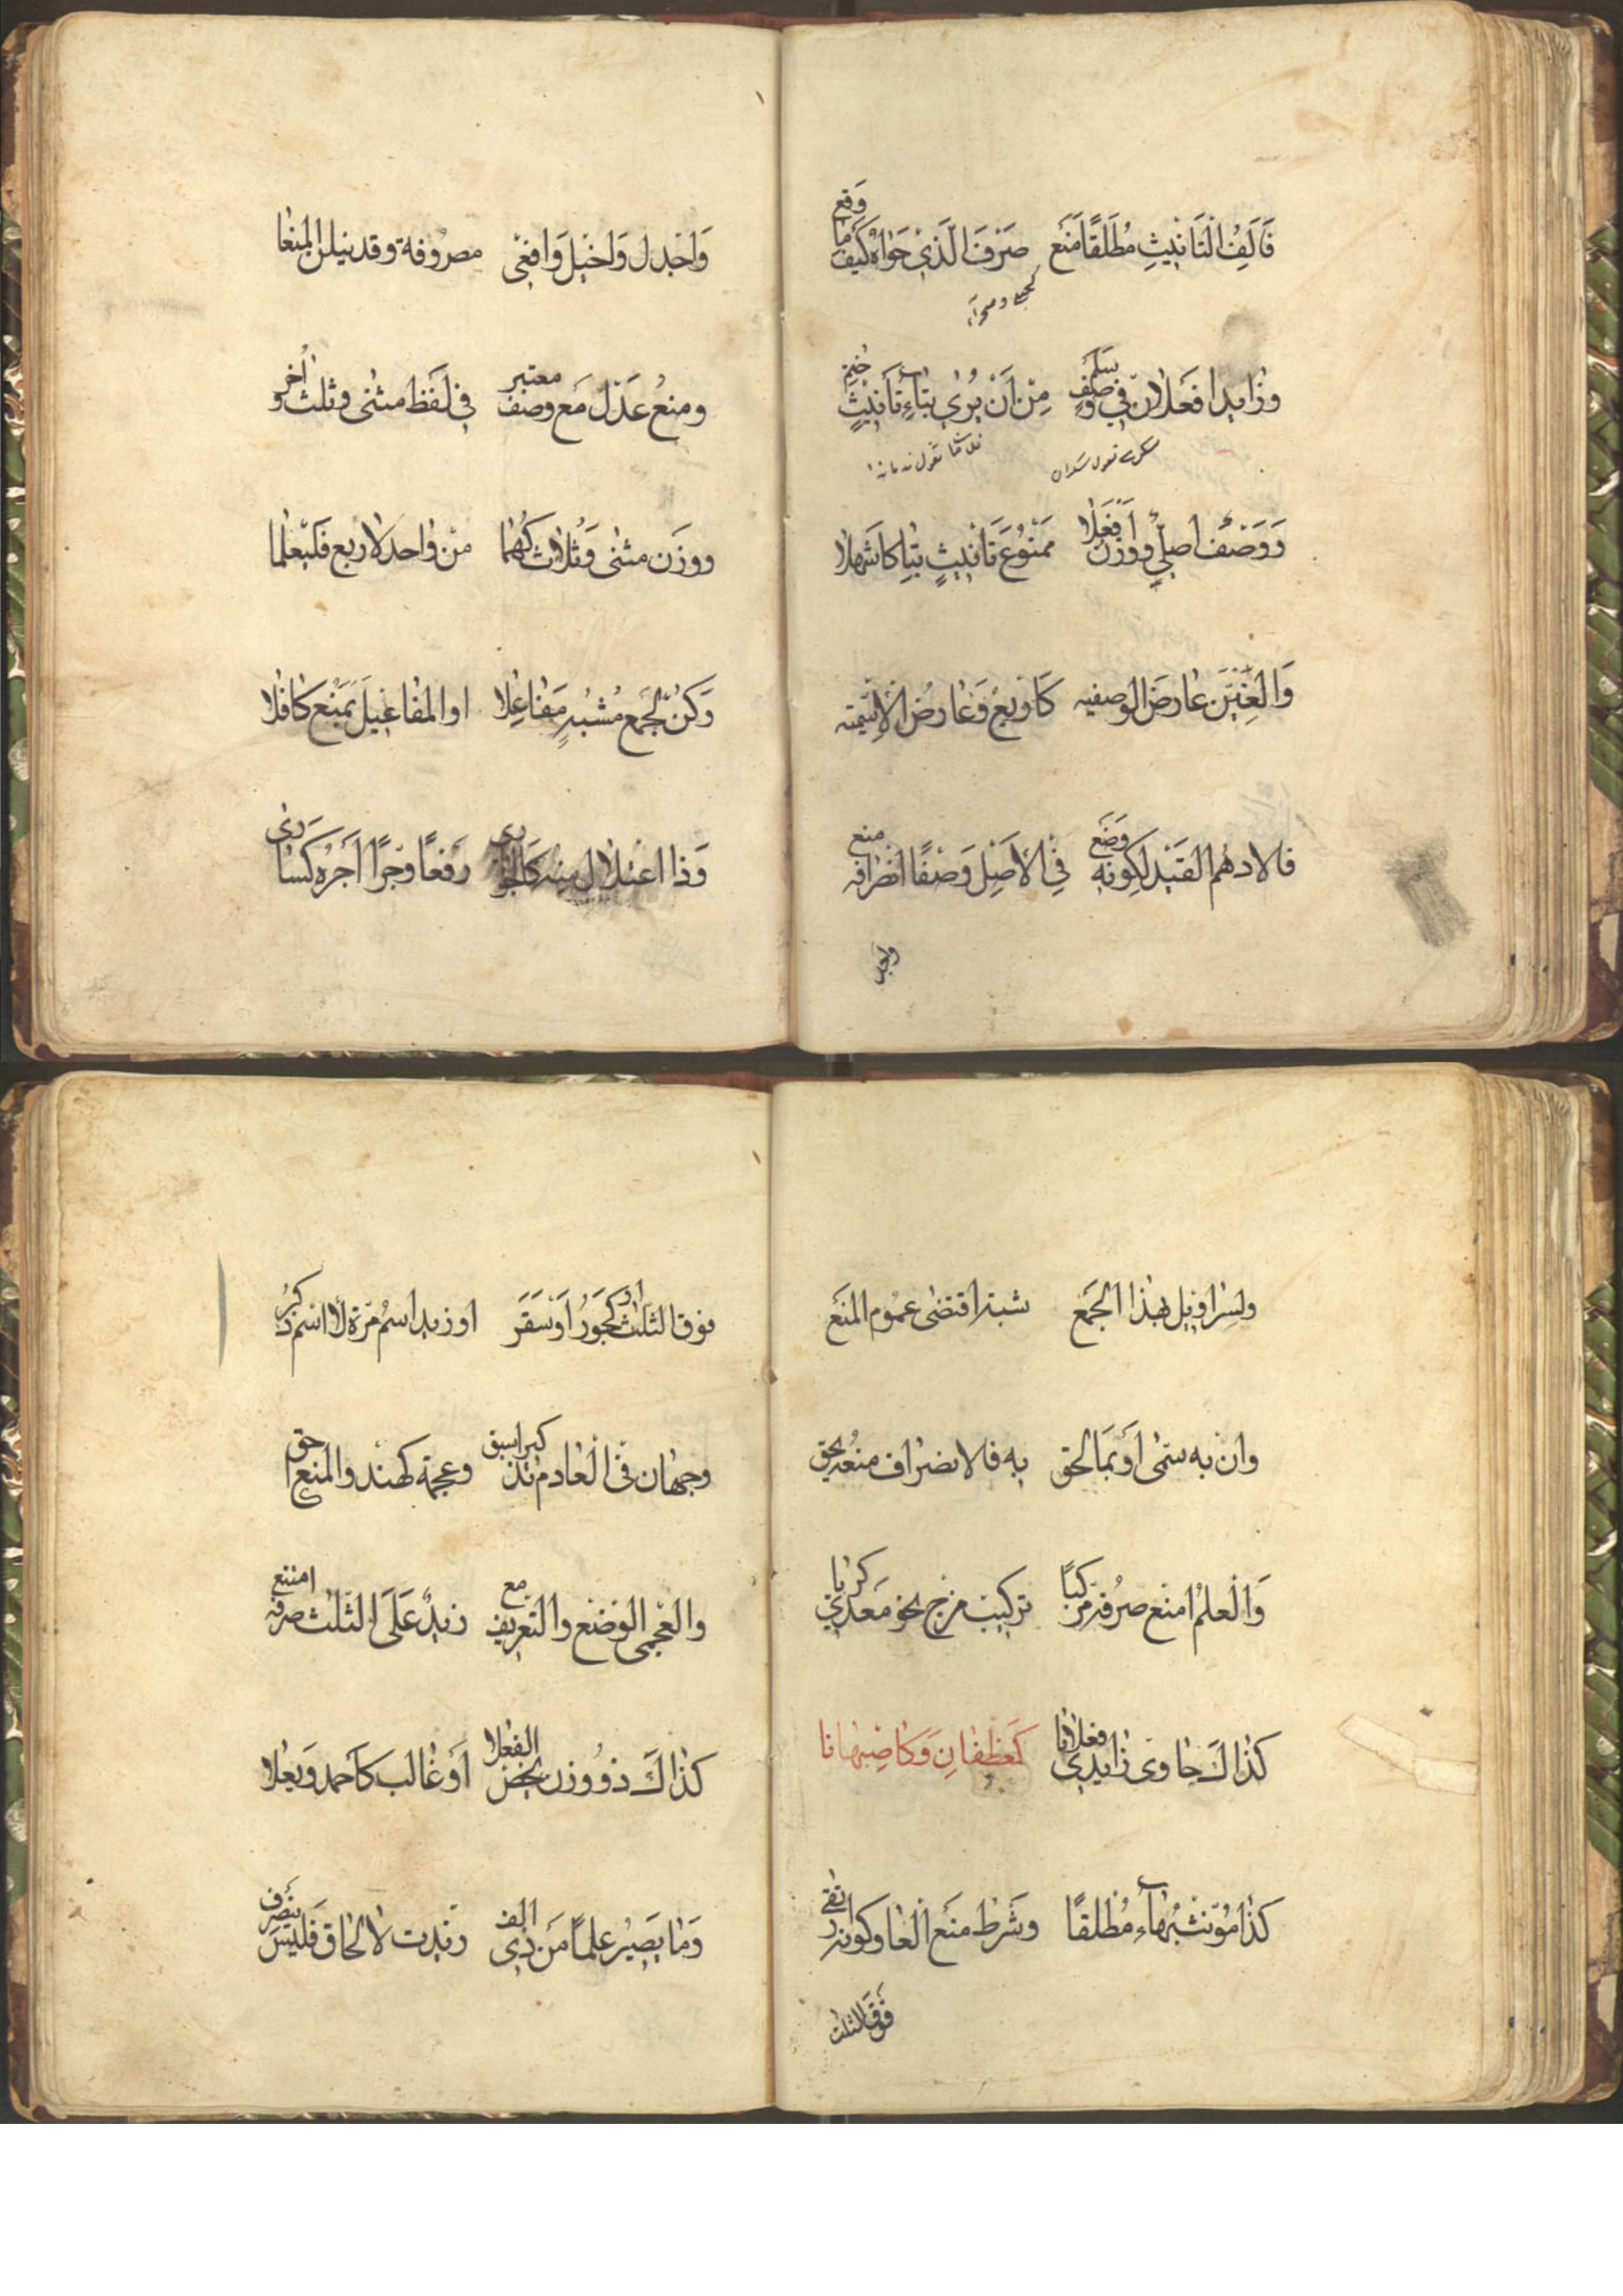 فَالَفُ الْتَانِيثِ مُطْلَقًا مَنَع صَرْفَ الَّذِي حَوَاهُ كَيْفَمَا وَقَع
وزايدا فعلان في وصف سَلم مِنْ اَنْ يُرى بتاءِ تَانِيثٍ خُتِم
وَوَصْف اصليّ ووزن اَفْعَلا مَمْنُوعَ تَانيثٍ بتا كاشهلا
وَالغِيَنّ عَارضَ الوصفيه كَاربع وَعارضَ الاسميه
فالادهم القيد لكونه وَضَع في الاَصْلِ وَصْفًا انصرافه منع
واجدل
وَاجْدل وَاخْيل وَافعى مصروفة وقد ينلن المنعا
ومنعُ عَدْل مَع وصف معتبر في لَفظ مثنى وثلث واُخر
ووزَن مثنى وَثُلاث كَهُما من واحد لاربع فَليُعلما
وَكنْ لجَمع مُشْبهٍ مَفاعِلا او المفاعيل بمَنع كافلا
وَذا اعتلال منه كَالجوارى رَفعًا وجرًا اَجره كَسَارى
ولسراويل بهذا الجمع شبه اقتضى عموم المنَع
وان به سمى اَو بمَا لحق به فالانصراف منعه يحق
وَالْعلم امنع صرفه مركبًا تركيب مزج نحو مَعدى كربا
كذاكَ حاوى زايدى فعلانا كَغطفانِ وَكاصِبهانا
كذا مُؤنث بهاء مُطلقا وشَرط منَع العار كونه ارتقى
فَوْقَ الثلث
فوق الثلث او كَجوَرُ اَوْ سَقَر او زيد اسْم مرَة لا اسْم ذكر
وجهان في الْعادم تذكيرا سبق وعجمة كهند والمنع احق
والعْجمى الوضْع والتعريف مع زيدٌ عَلَى الثلث صرفه امتنع
كذاكَ ذو وزن يخص الفعلا اَو غالب كَاحمد وَيعْلا
وَما يَصيرُ علمًا مَن ذى الف زيدت لالحاق فَليسَ ينصرف